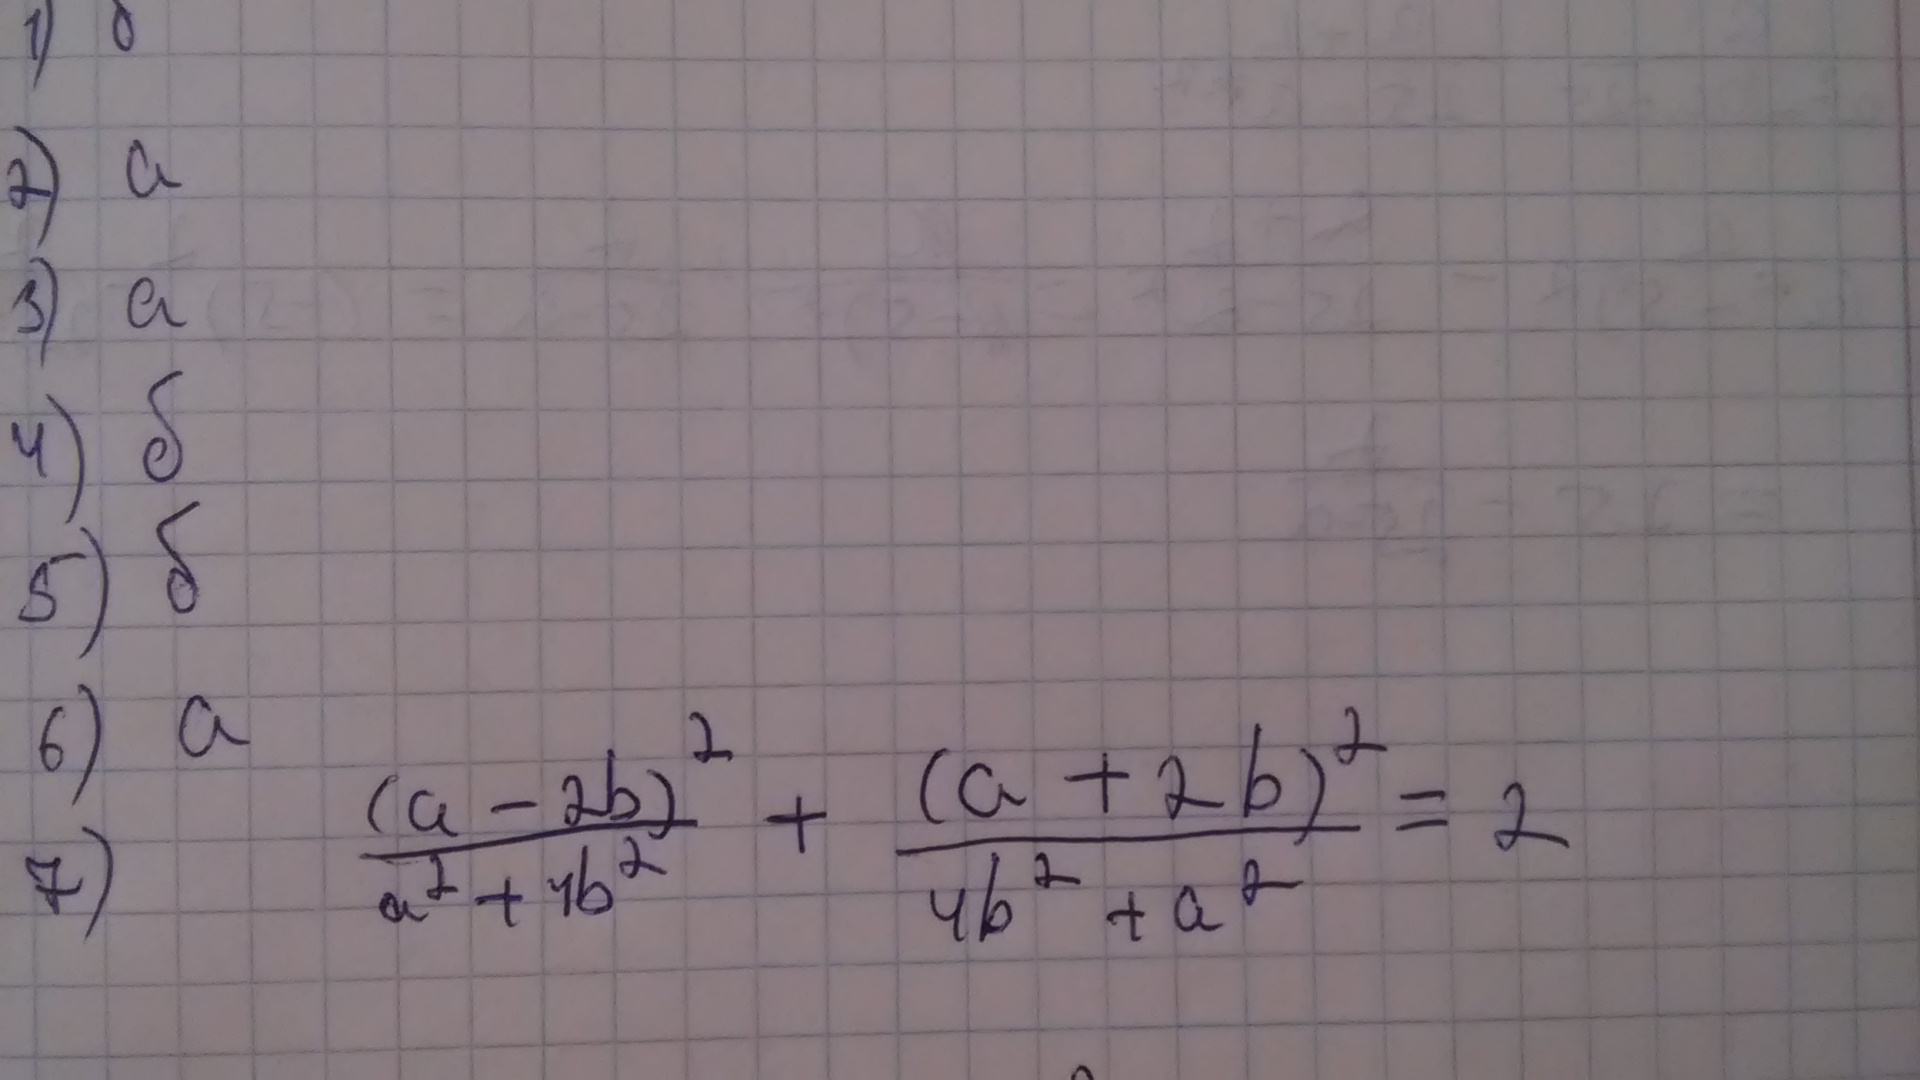 1) б
2) а
3) а
4) б
5) б
6) а
7) (a - 2b)²/(a² + 4b²) + (a + 2b)²/(4b² + a²) = 2